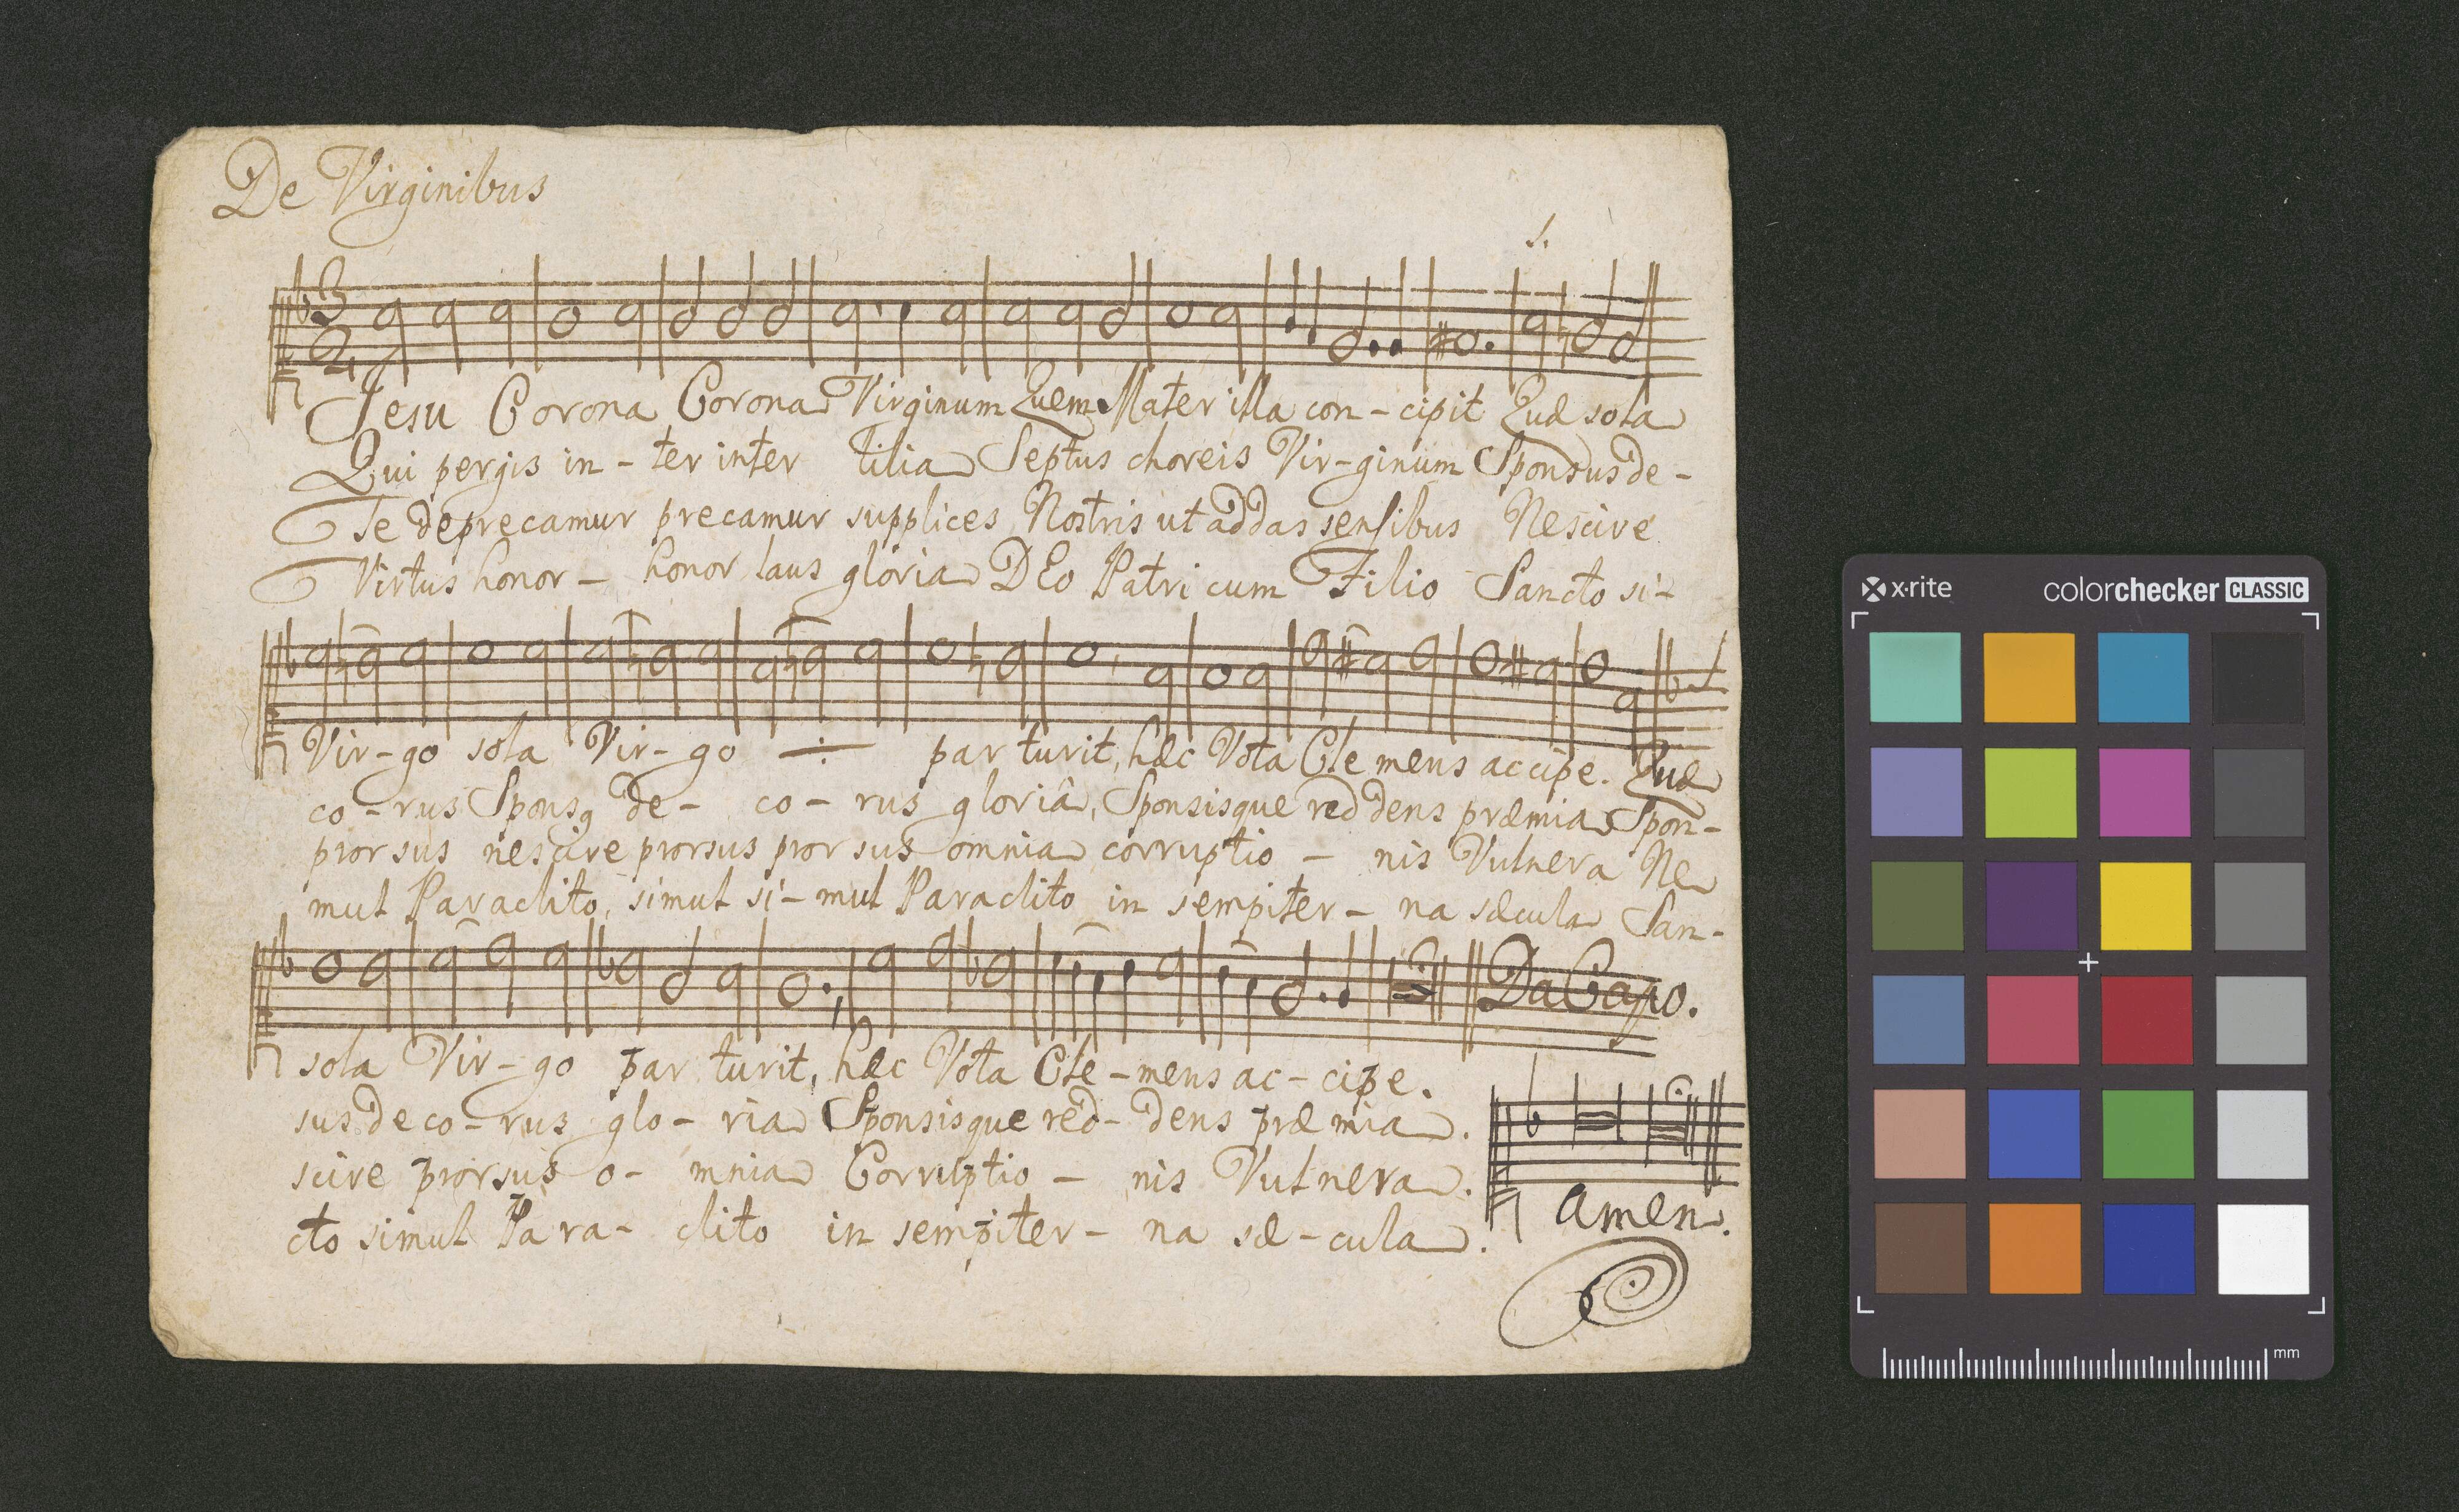 De Virginibus
s.
3
2
Jesu Corona Corona Virginum Quem Mater illa con-cipit Quæ sola
Qui pergis in-ter inter lilia Septus choreis Vir-ginum Sponsus de-
Te deprecamur precamur supplices Nostris ut addas sensibus Nescire
Virtus honor- honor laus gloria DEo Patri cum Filio Sancto si-
Vir-go sola Vir-go ÷ par turit, hæc Vota Cle mens accipe. Quæ
co-rus Spons9 de- co-rus gloriâ, Sponsisque reddens præmia Spon-
prorsus nescire prorsus prorsus omnia corruptio - nis Vulnera Ne
mul Paraclito, simul si-mul Paraclito in sempiter- na sæcula San-
Da Capo.
sola Vir-go par turit, hæc Vota Cle-mens ac-cipe.
sus deco-rus glo-ria Sponsisque red-dens præmia.
scire prorsus o- mnia Corruptio - nis Vulnera.
cto simul Para- clito in sempiter- na sæ-cula.
amen.
x·rite
colorchecker CLASSIC
mm